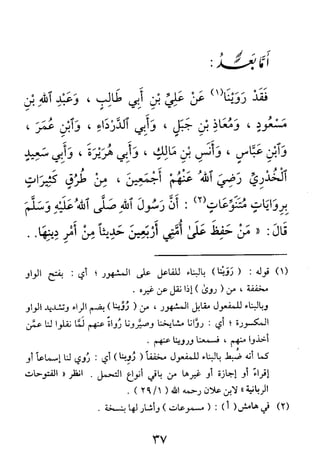 أَمَّا بَعْدُ :
فَقَدْ رَوَيْنَا (١) عَنْ عَلِيِّ بْنِ أَبِي طَالِبٍ ، وَعَبْدِ اللهِ بْنِ
مَسْعُودٍ ، وَمُعَاذِ بْنِ جَبَلٍ ، وَأَبِي الدَّرْدَاءِ ، وَابْنِ عُمَرَ ،
وَابْنِ عَبَّاسٍ ، وَأَنَسِ بْنِ مَالِكٍ ، وَأَبِي هُرَيْرَةَ ، وَأَبِي سَعِيدٍ
الْخُدْرِيِّ رَضِيَ اللهُ عَنْهُمْ أَجْمَعِينَ ، مِنْ طُرُقٍ كَثِيرَاتٍ
بِرِوَايَاتٍ مُتَنَوِّعَاتٍ (٢) : أَنَّ رَسُولَ اللهِ صَلَّى اللهُ عَلَيْهِ وَسَلَّمَ
قَالَ : « مَنْ حَفِظَ عَلَىٰ أُمَّتِي أَرْبَعِينَ حَدِيثاً مِنْ أَمْرِ دِينِهَا. .
(١) قوله : ( رَوَيْنا ) بالبناء للفاعل على المشهور ؛ أي : بفتح الواو
مخففة ، من ( روى ) إذا نقل عن غيره .
وبالبناء للمفعول مقابل المشهور ، من ( رُوِّينا ) بضم الراء وتشديد الواو
المكسورة ؛ أي : روَّانا مشايخنا وصيَّرونا رُواةً عنهم لمَّا نقلوا لنا عمَّن
أخذوا منهم ، فسمعنا وروينا عنهم .
كما أنه ضُبط بالبناء للمفعول مخففاً ( رُوِينا ) أي : رُوي لنا إسماعاً أو
إقراءً أو إجازة أو غيرها من باقي أنواع التحمل . انظر « الفتوحات
الربانية » لابن علان رحمه الله ( ٢٩/١ ) .
(٢) في هامش ( أ ) : ( مسموعات ) وأشار لها بنسخة .
٣٧